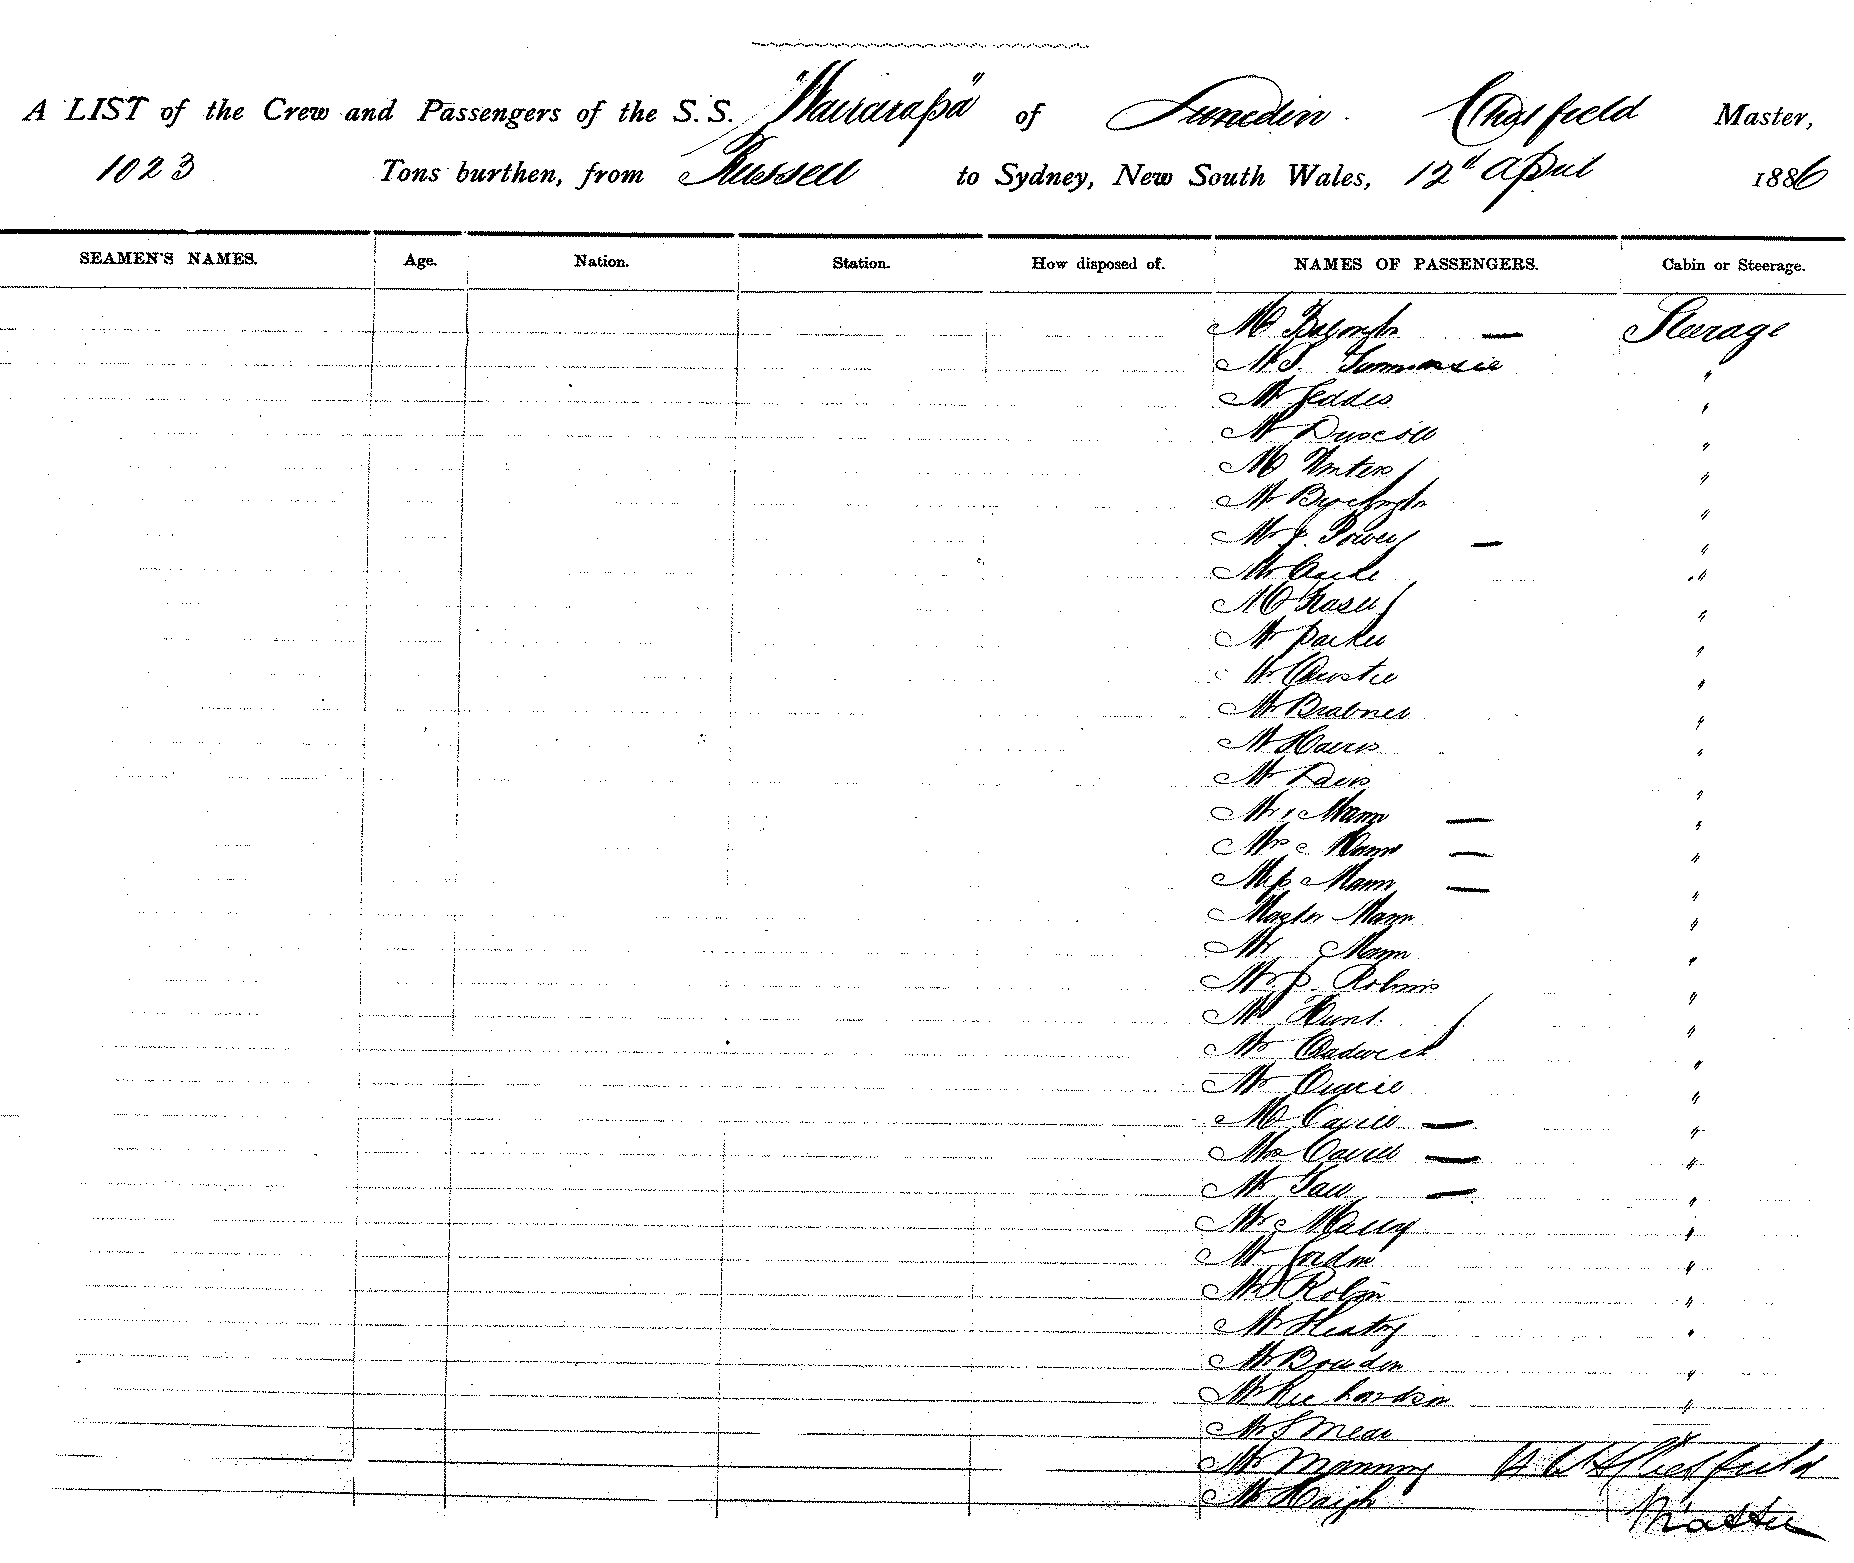 A LIST of the Crew and Passengers of the S.S. "Wairarapa" of Dunedin. Chatfield Master,
1023 Tons burthen, from Russell to Sydney, New South Wales, 12th April 1886
SEAMEN'S NAMES. Age. Nation. Station. How disposed of. NAMES OF PASSENGERS. Cabin or Steerage.
Mr — Steerage
Mr "
Mr Geddes "
Mr Driscoll "
Mr "
Mr "
Mr Power — "
Mr "
Mr Fraser "
Mr Parker "
Mr Christie "
Mr Brabner "
Mr Harris "
Mr Davis "
Mr Mann — "
Mrs Mann — "
Miss Mann — "
Master Mann "
Mr Mann "
Mr Robins "
Mr Hunt. "
Mr Cadweck "
Mr Currie "
Mr Cavill — "
Mrs Cavill — "
Mr — "
Mr "
Mr Jordon "
Mr Robin "
Mr "
Mr Bowden "
Mr Richardson "
Mr Smear
Mr Manning Chatfield
Mr Haigh Master